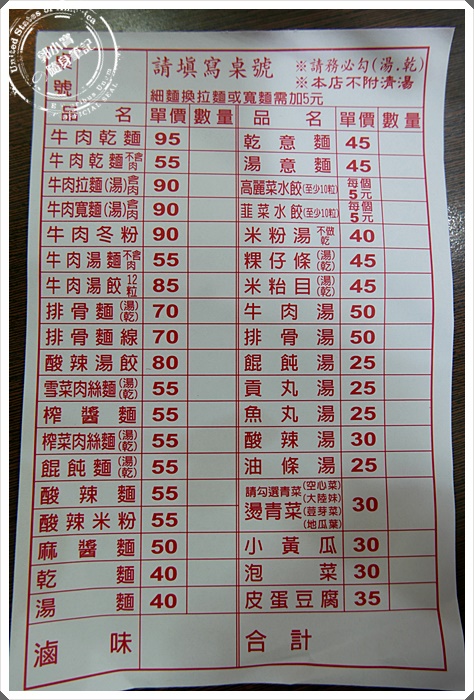 號
請填寫桌號
※請務必勾(湯.乾)
※本店不附清湯
細麵換拉麵或寬麵需加5元
品名 單價 數量 品名 單價 數量
牛肉乾麵 95 乾意麵 45
牛肉乾麵不含肉 55 湯意麵 45
牛肉拉麵(湯)含肉 90 高麗菜水餃(至少10粒) 每個5元
牛肉寬麵(湯)含肉 90 韮菜水餃(至少10粒) 每個5元
牛肉冬粉 90 米粉湯不做乾 40
牛肉湯麵不含肉 55 粿仔條(湯)(乾) 45
牛肉湯餃12粒 85 米粘目(湯)(乾) 45
排骨麵(湯)(乾) 70 牛肉湯 50
排骨麵線 70 排骨湯 50
酸辣湯餃 80 餛飩湯 25
雪菜肉絲麵(湯)(乾) 55 貢丸湯 25
榨醬麵 55 魚丸湯 25
榨菜肉絲麵(湯)(乾) 55 酸辣湯 30
餛飩麵(湯)(乾) 55 油條湯 25
酸辣麵 55 請勾選青菜 燙青菜 (空心菜)(大陸妹)(荳芽菜)(地瓜葉) 30
酸辣米粉 55
麻醬麵 50 小黃瓜 30
乾麵 40 泡菜 30
湯麵 40 皮蛋豆腐 35
滷味 合計